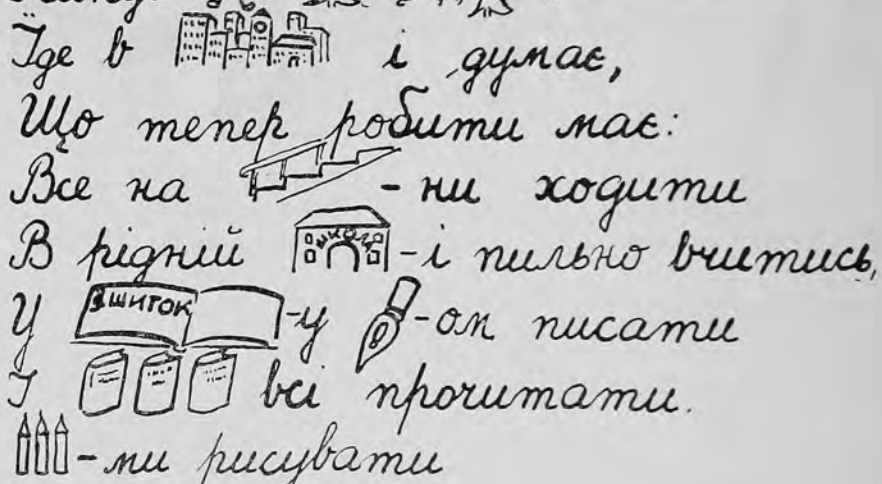 Їде в і думає,
Що тепер робити має:
Все на -ни ходити
В рідній школ-і пильно вчитись,
У Зшиток-у -ом писати
І всі прочитати.
-ми рисувати